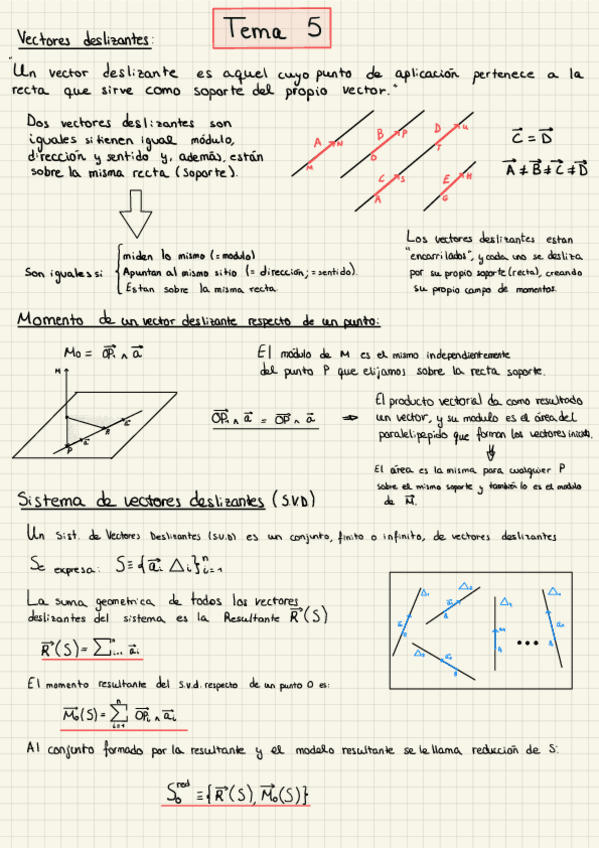 Tema 5
Vectores deslizantes:
"Un vector deslizante es aquel cuyo punto de aplicación pertenece a la
recta que sirve como soporte del propio vector."
Dos vectores deslizantes son
iguales si tienen igual módulo,
dirección y sentido y, además, están
sobre la misma recta (soporte).
A M N
B O P
C A S
D T U
E G H
C⃗ = D⃗
A⃗ ≠ B⃗ ≠ C⃗ ≠ D⃗
Son iguales si
miden lo mismo (= modulo)
Apuntan al mismo sitio (= dirección; = sentido).
Estan sobre la misma recta.
Los vectores deslizantes estan
"encarrilados", y cada uno se desliza
por su propio soporte (recta), creando
su propio campo de momentos.
Momento de un vector deslizante respecto de un punto:
Mo = OPi ∧ a⃗
El módulo de M es el mismo independientemente
del punto P que elijamos sobre la recta soporte.
M
P a⃗ R a⃗
OPi ∧ a⃗ = OP ∧ a⃗ ⇒
El producto vectorial da como resultado
un vector, y su modulo es el área del
paralelipepido que forman los vectores
El área es la misma para cualquier P
sobre el mismo soporte y también lo es el modulo
de M⃗.
Sistema de vectores deslizantes (S.V.D)
Un Sist. de Vectores Deslizantes (S.V.D) es un conjunto, finito o infinito, de vectores deslizantes
Se expresa: S ≡ {a⃗i Δi}ⁿi=1
La suma geometrica de todos los vectores
deslizantes del sistema es la Resultante R⃗(S)
R⃗(S) = Σⁿi... a⃗i
El momento resultante del S.v.d. respecto de un punto O es:
M⃗o(S) = Σⁿi=1 OPi ∧ a⃗i
Al conjunto formado por la resultante y el modelo resultante se le llama reducción de S:
S₀ʳᵉᵈ ≡ {R⃗(S), M⃗o(S)}